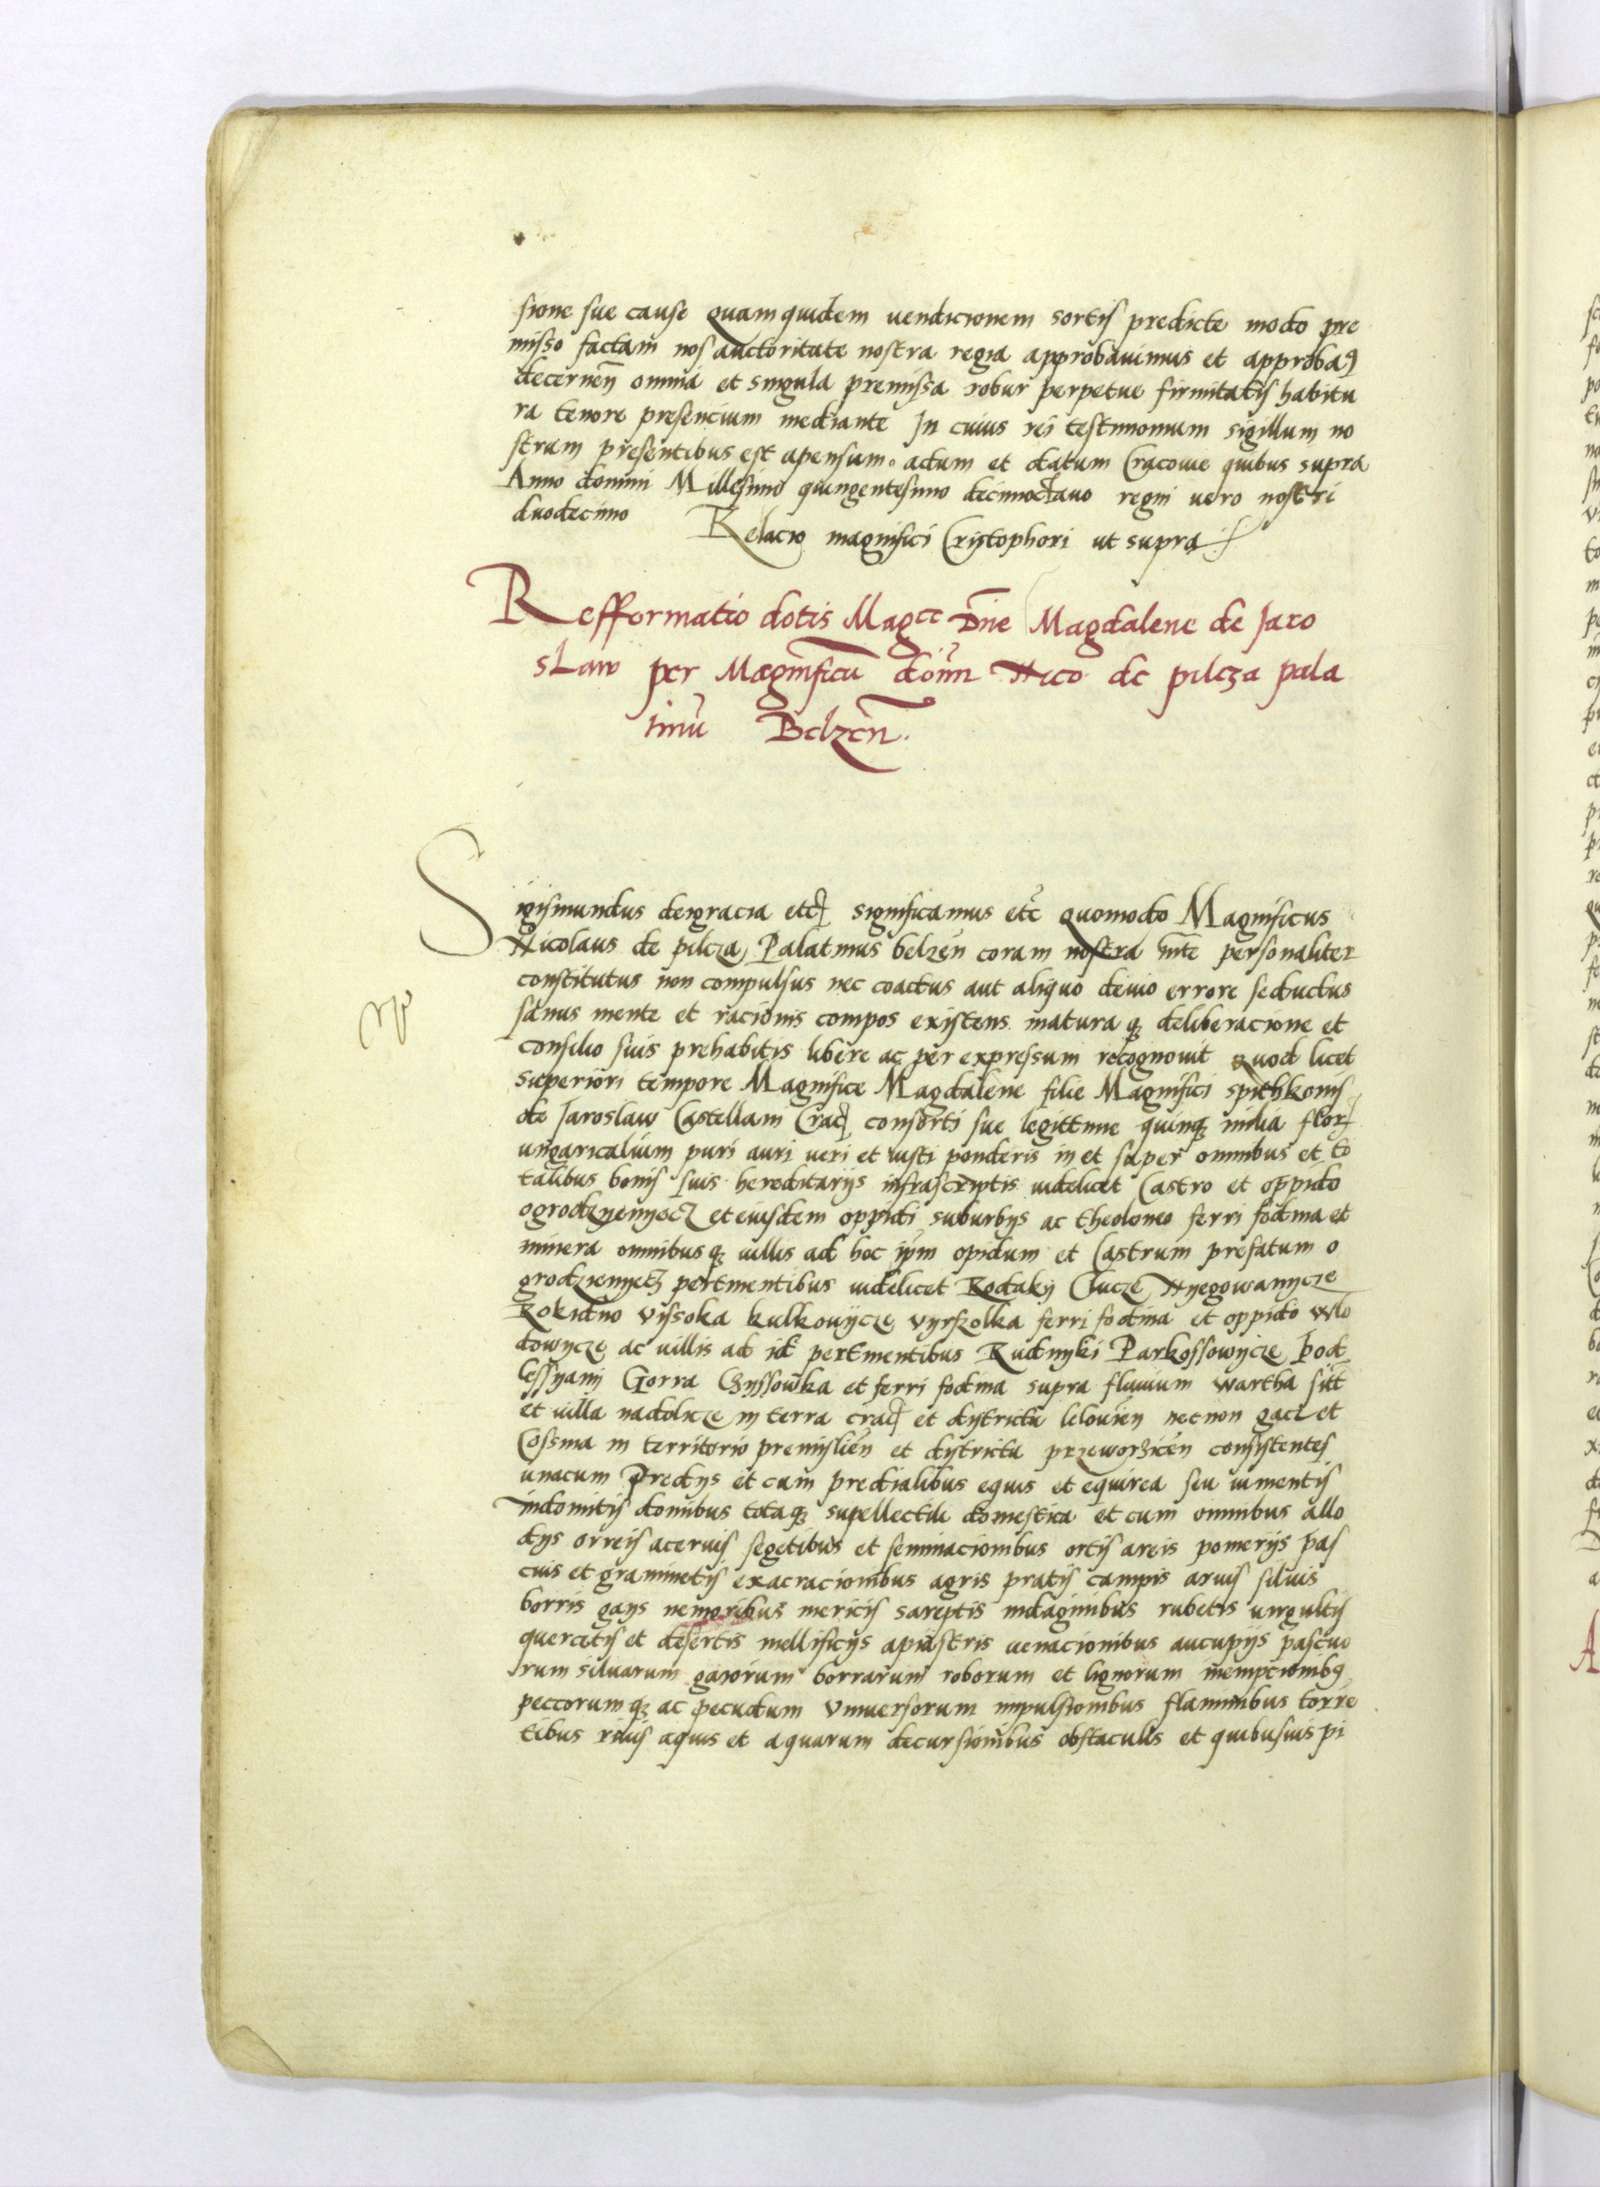 sione sue cause Quam quidem uendicionem sortis predicte modo pre
misso factam nos auctoritate nostra regia approbauimus et approbaꝯ
decerneñ omnia et singula premissa robur perpetue firmitatis habitu
ra tenore presencium mediante In cuius rei testimonium sigillum no
strum presentibus est apensum. actum et datum Cracouie quibus supra
Anno domini Millesimo quingentesimo decimooctauo regni uero nostri
duodecimo Relacio magnifici Cristophori ut supra
Refformatio dotis Magce Dne Magdalene de Jaro
slaw per Magnificu doim Nico de pilcza pala
tinu Belzen.
Sigismundus deigracia etc significamus etc Quomodo Magnificus
Nicolaus de pilcza Palatinus belzen coram nostra mte personaliter
constitutus non compulsus nec coactus aut aliquo deuio errore seductus
sanus mente et racionis compos existens maturaqꝫ deliberacione et
consilio suis prehabitis libere ac per expressum recognouit Quod licet
superiori tempore Magnifice Magdalene filie Magnifici spithkonis
de Jaroslaw Castellani Crac consorti sue legittime quinqꝫ milia flor
ungaricalium puri auri ueri et iusti ponderis in et super omnibus et to
talibus bonis suis hereditarijs infrascriptis uidelicet Castro et oppido
ogrodzyenyecz et eiusdem oppidi suburbijs ac theoloneo ferri fodina et
minera omnibusqꝫ uillis ad hoc ipm opidum et Castrum prefatum o
grodzienyecz pertinentibus uidelicet Rodaky Clucze Nyegowanycze
Rokidno vyssoka kulkouycze vyrszolka ferri fodina et oppido wlo
dowycze ac uillis ad id pertinentibus Rudnyki Parkossowycze Pod
lessyany Gorra Czyssowka et ferri fodina supra fluuium wartha sitt
et uilla nadolicze in terra crac et dystrictu lelouien necnon gacz et
Cossina in territorio premyslien et dystrictu przeworszcen consystentes
unacum Predijs et cum predialibus equis et equirea seu iumentis
indomitis domibus totaqꝫ supellectili domestica et cum omnibus allo
dijs orreis aceruis segetibus et seminacionibus ortis areis pomerijs pas
cuis et graminetis exacracionibus agris pratis campis aruis siluis
borris gays nemoribus mericis sareptis indaginibus rubetis uirgultis
quercetis et desertis mellificijs apiastris uenacionibus aucupijs pascuo
rum siluarum gaiorum borrarum roborum et lignorum inempcionibꝯ
peccorumqꝫ ac pecudum vniuersorum impulsionibus flaminibus torre
tibus riuis aquis et aquarum decursionibus obstaculis et quibusuis pi